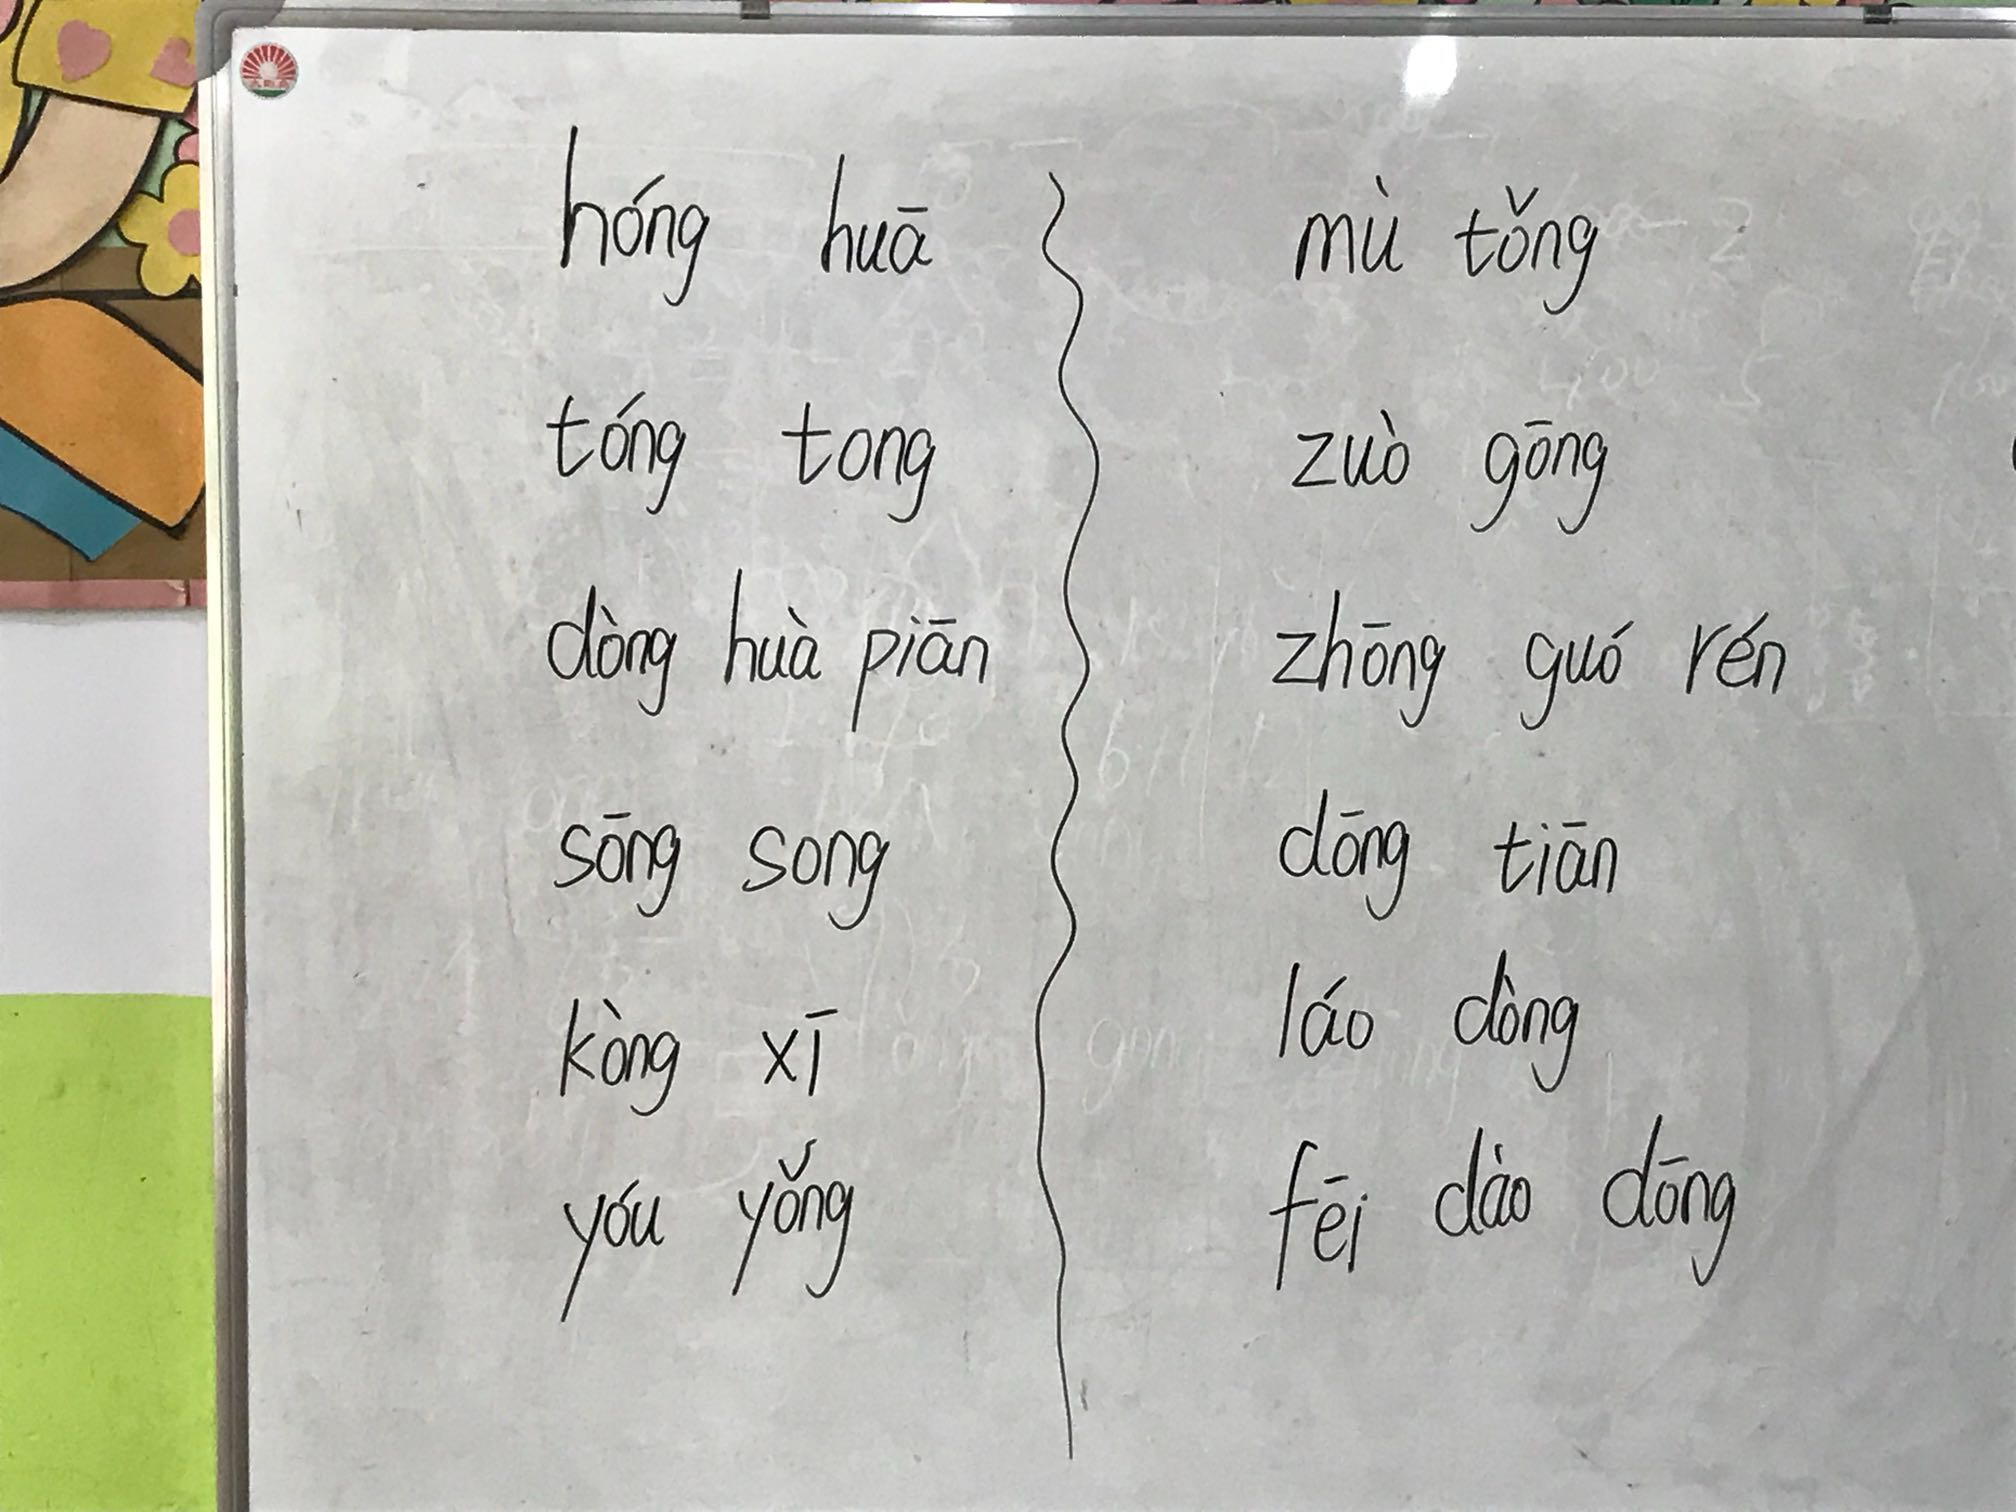 hóng huā
tóng tong
dòng huà piān
sōng song
kòng xī
yóu yǒng
mù tǒng
zuò gōng
zhōng guó rén
dōng tiān
láo dòng
fēi dào dōng